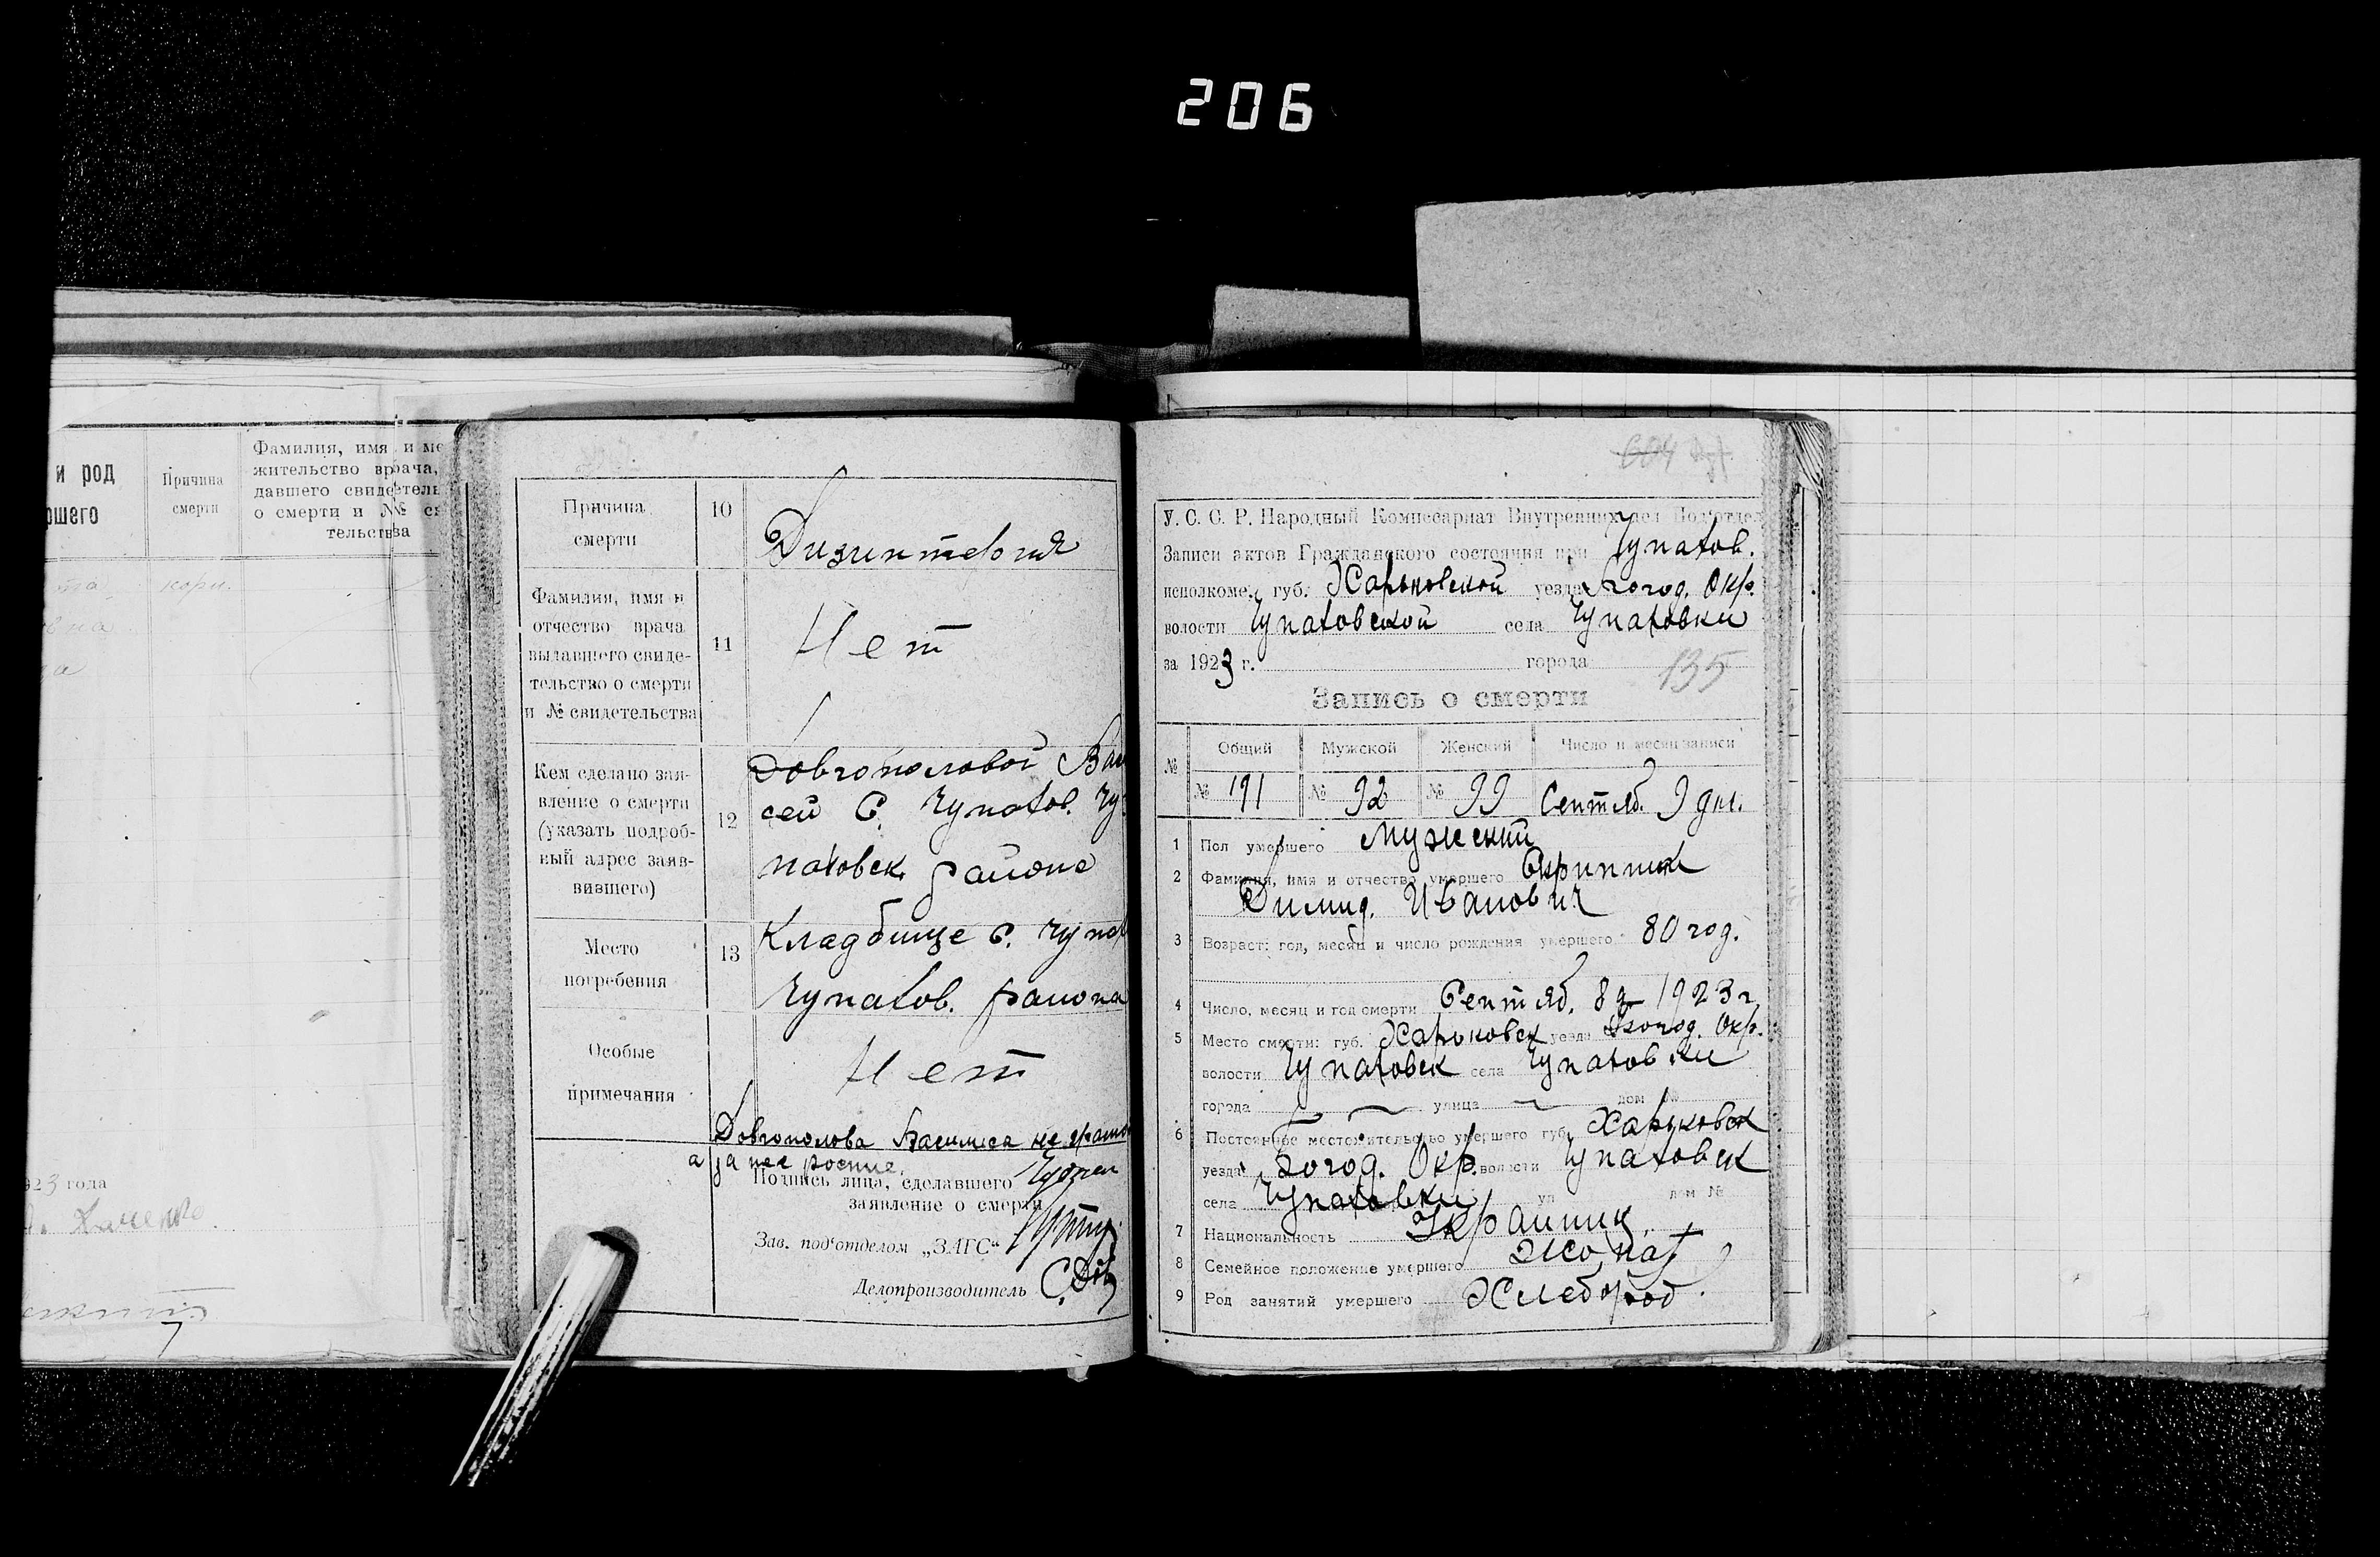 206
и род
ршего
Причина
смерти
Фамилия, имя и ме
жительство врача,
давшего свидетель
о смерти и № св
тельства
кори.
923 года
Причина
смерти
10
Дизинтерия
Фамилия, имя и
отчество врача
выдавшего свиде-
тельство о смерти
и № свидетельства
11
Нет
Кем сделано зая-
вление о смерти
(указать подроб-
ный адрес заяв-
вившего)
12
Довгополовой Ва
сей С. Чупахов. Чу
паховск. района
Место
погребения
13
Кладбище С. Чупах
Чупахов. района
Особые
примечания
Нет
Довгополова Василиса не грамо
а за нее росписе.
Подпись лица, сделавшего
заявление о смерти
Зав. под'отделом „ЗАГС"
Делопроизводитель
604
У. С. С. Р. Народный Комиссариат Внутренних дел Под'отдел
Записи актов Гражданского состояния при Чупахов.
исполкоме, губ. Харьковской уезда Богод. Окр.
волости Чупаховской села Чупаховки
за 1923 г. города
135
Запись о смерти
№ Общий Мужской Женский Число и месяц записи
№ 191 № 92 № 99 Сентяб. 9 дн.
1 Пол умершего Мужский
2 Фамилия, имя и отчество умершего Скрипник
Димид. Иванович
3 Возраст: год, месяц и число рождения умершего 80 год.
4 Число, месяц и год смерти Сентяб. 8д 1923 г.
5 Место смерти: губ. Харьковск уезда Богод. Окр.
волости Чупаховск села Чупаховки
города улица дом №
6 Постоянное местожительство умершего губ. Харьковск
уезда Богод. Окр. волости Чупаховск
села Чупаховки ул дом №
7 Национальность Украиник.
8 Семейное положение умершего Жонат
9 Род занятий умершего Хлебород.